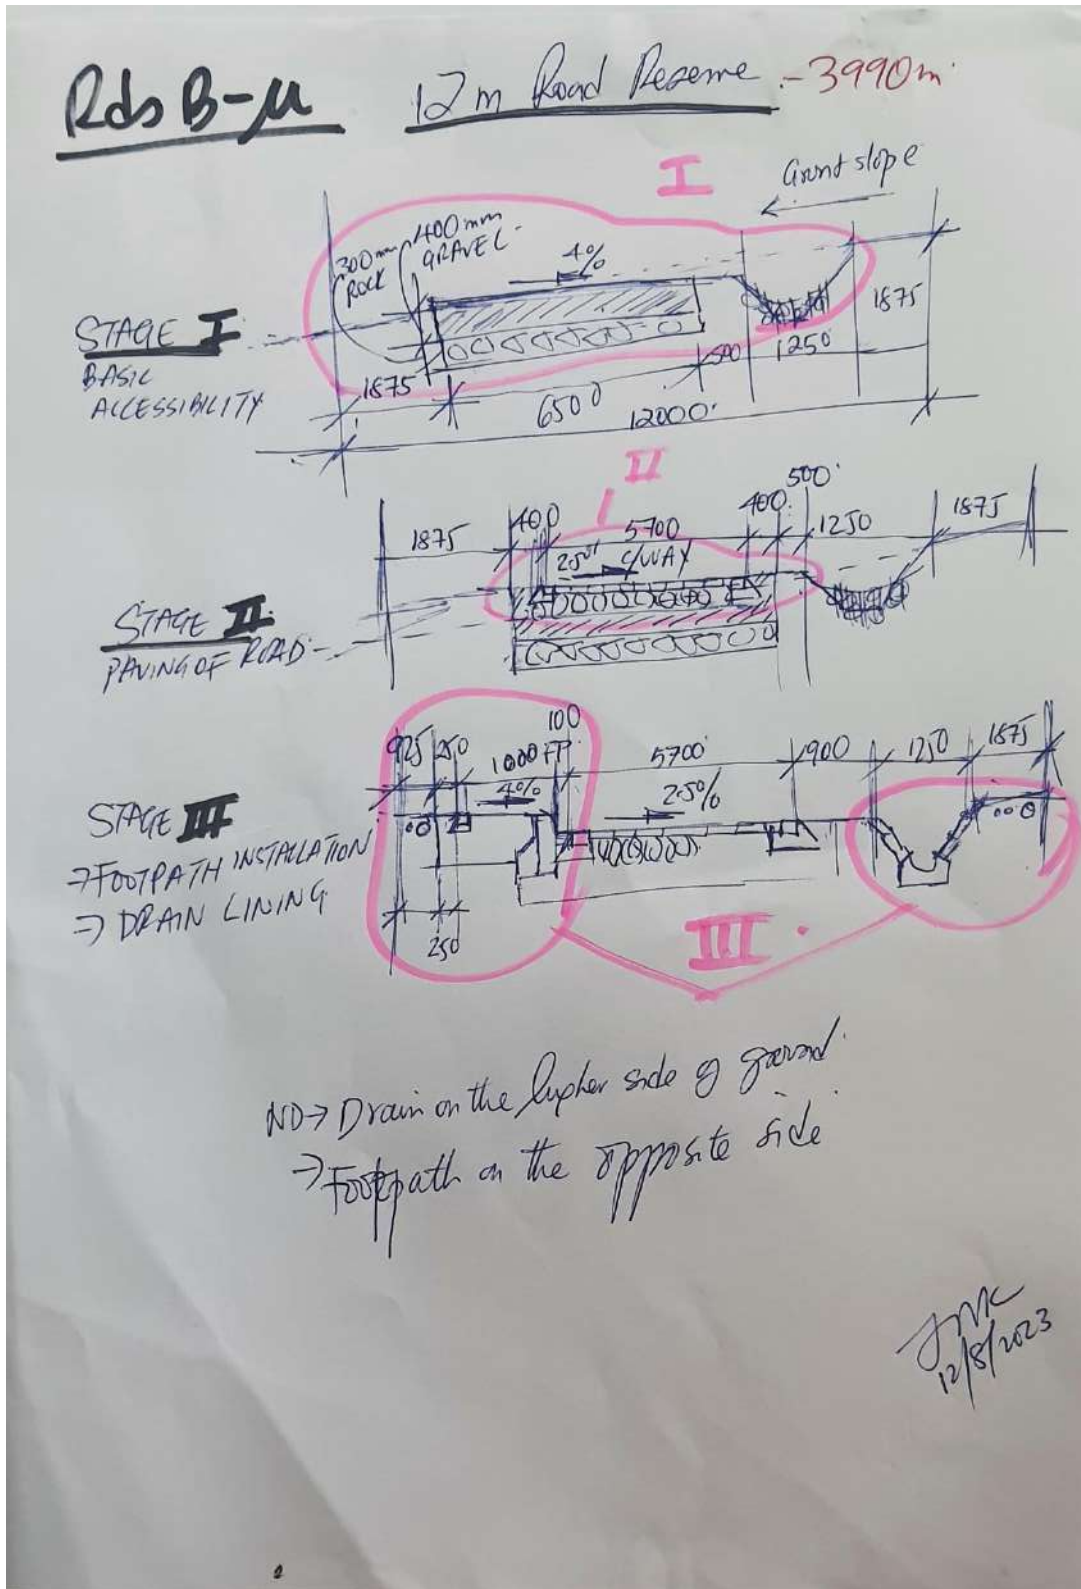 Rds B-M 12m Road Reserve - 3990m
I
Grount slope
300mm ROCK
400mm GRAVEL
4%
STAGE I
BASIC
ACCESSIBILITY
1875
6500
500
1250
1875
12000
II
1875
400
5700
400
500
1250
1875
2.5%
C/WAY
STAGE II
PAVING OF ROAD
925
250
1000 FP
100
5700
900
1250
1875
4%
2.5%
STAGE III
→ FOOTPATH INSTALLATION
→ DRAIN LINING
250
III
→ Drain on the higher side of ground
→ Footpath on the opposite side
12/8/2023
2